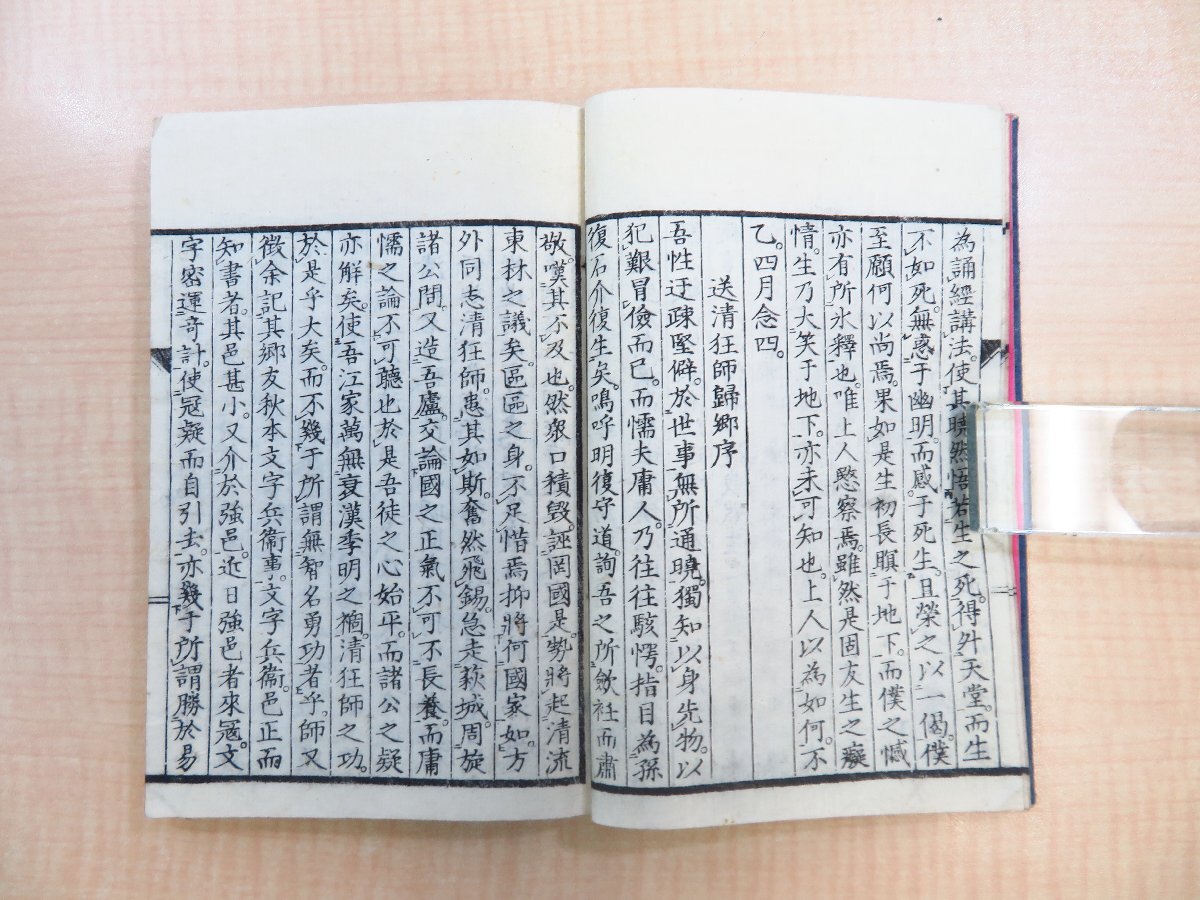 為誦經講法。使其曉然悟若生之死。得舛天堂。而生
不如死。無惑于幽明。而感于死生。且榮之以一偈。僕
至願何以尚焉。果如是生初長瞑于地下。而僕之憾
亦有所氷釋也。唯上人愍察焉。雖然是固友生之癡
情。生乃大笑于地下。亦未可知也。上人以為如何。不
乙。四月念四。
送清狂師歸鄉序
吾性迂疎堅僻。於世事無所通曉。獨知以身先物。以
犯艱冒儉而已。而懦夫庸人。乃往往駭愕。指目為孫
復石介復生矣。嗚呼明復守道。詢吾之所斂衽而肅
敬。嘆其不及也。然衆口積毀。誣罔國是。勢將起清流
東林之議矣。區區之身。不足惜焉。抑將何國家如。方
外同志清狂師。患其如斯。奮然飛錫。急走萩城。周旋
諸公間。又造吾廬。交論國之正氣不可不長養。而庸
懦之論不可聽也。於是吾徒之心始平。而諸公之疑
亦解矣。使吾江家萬無衰漢季明之禍。清狂師之功。
於是乎大矣。而不幾于所謂無智名勇功者乎。師又
徴余記其鄉友秋本文字兵衞事。文字兵衞。邑正而
知書者。其邑甚小。又介於強邑。近日強邑者來寇。文
字密運奇計。使寇疑而自引去。亦幾于所謂勝於易